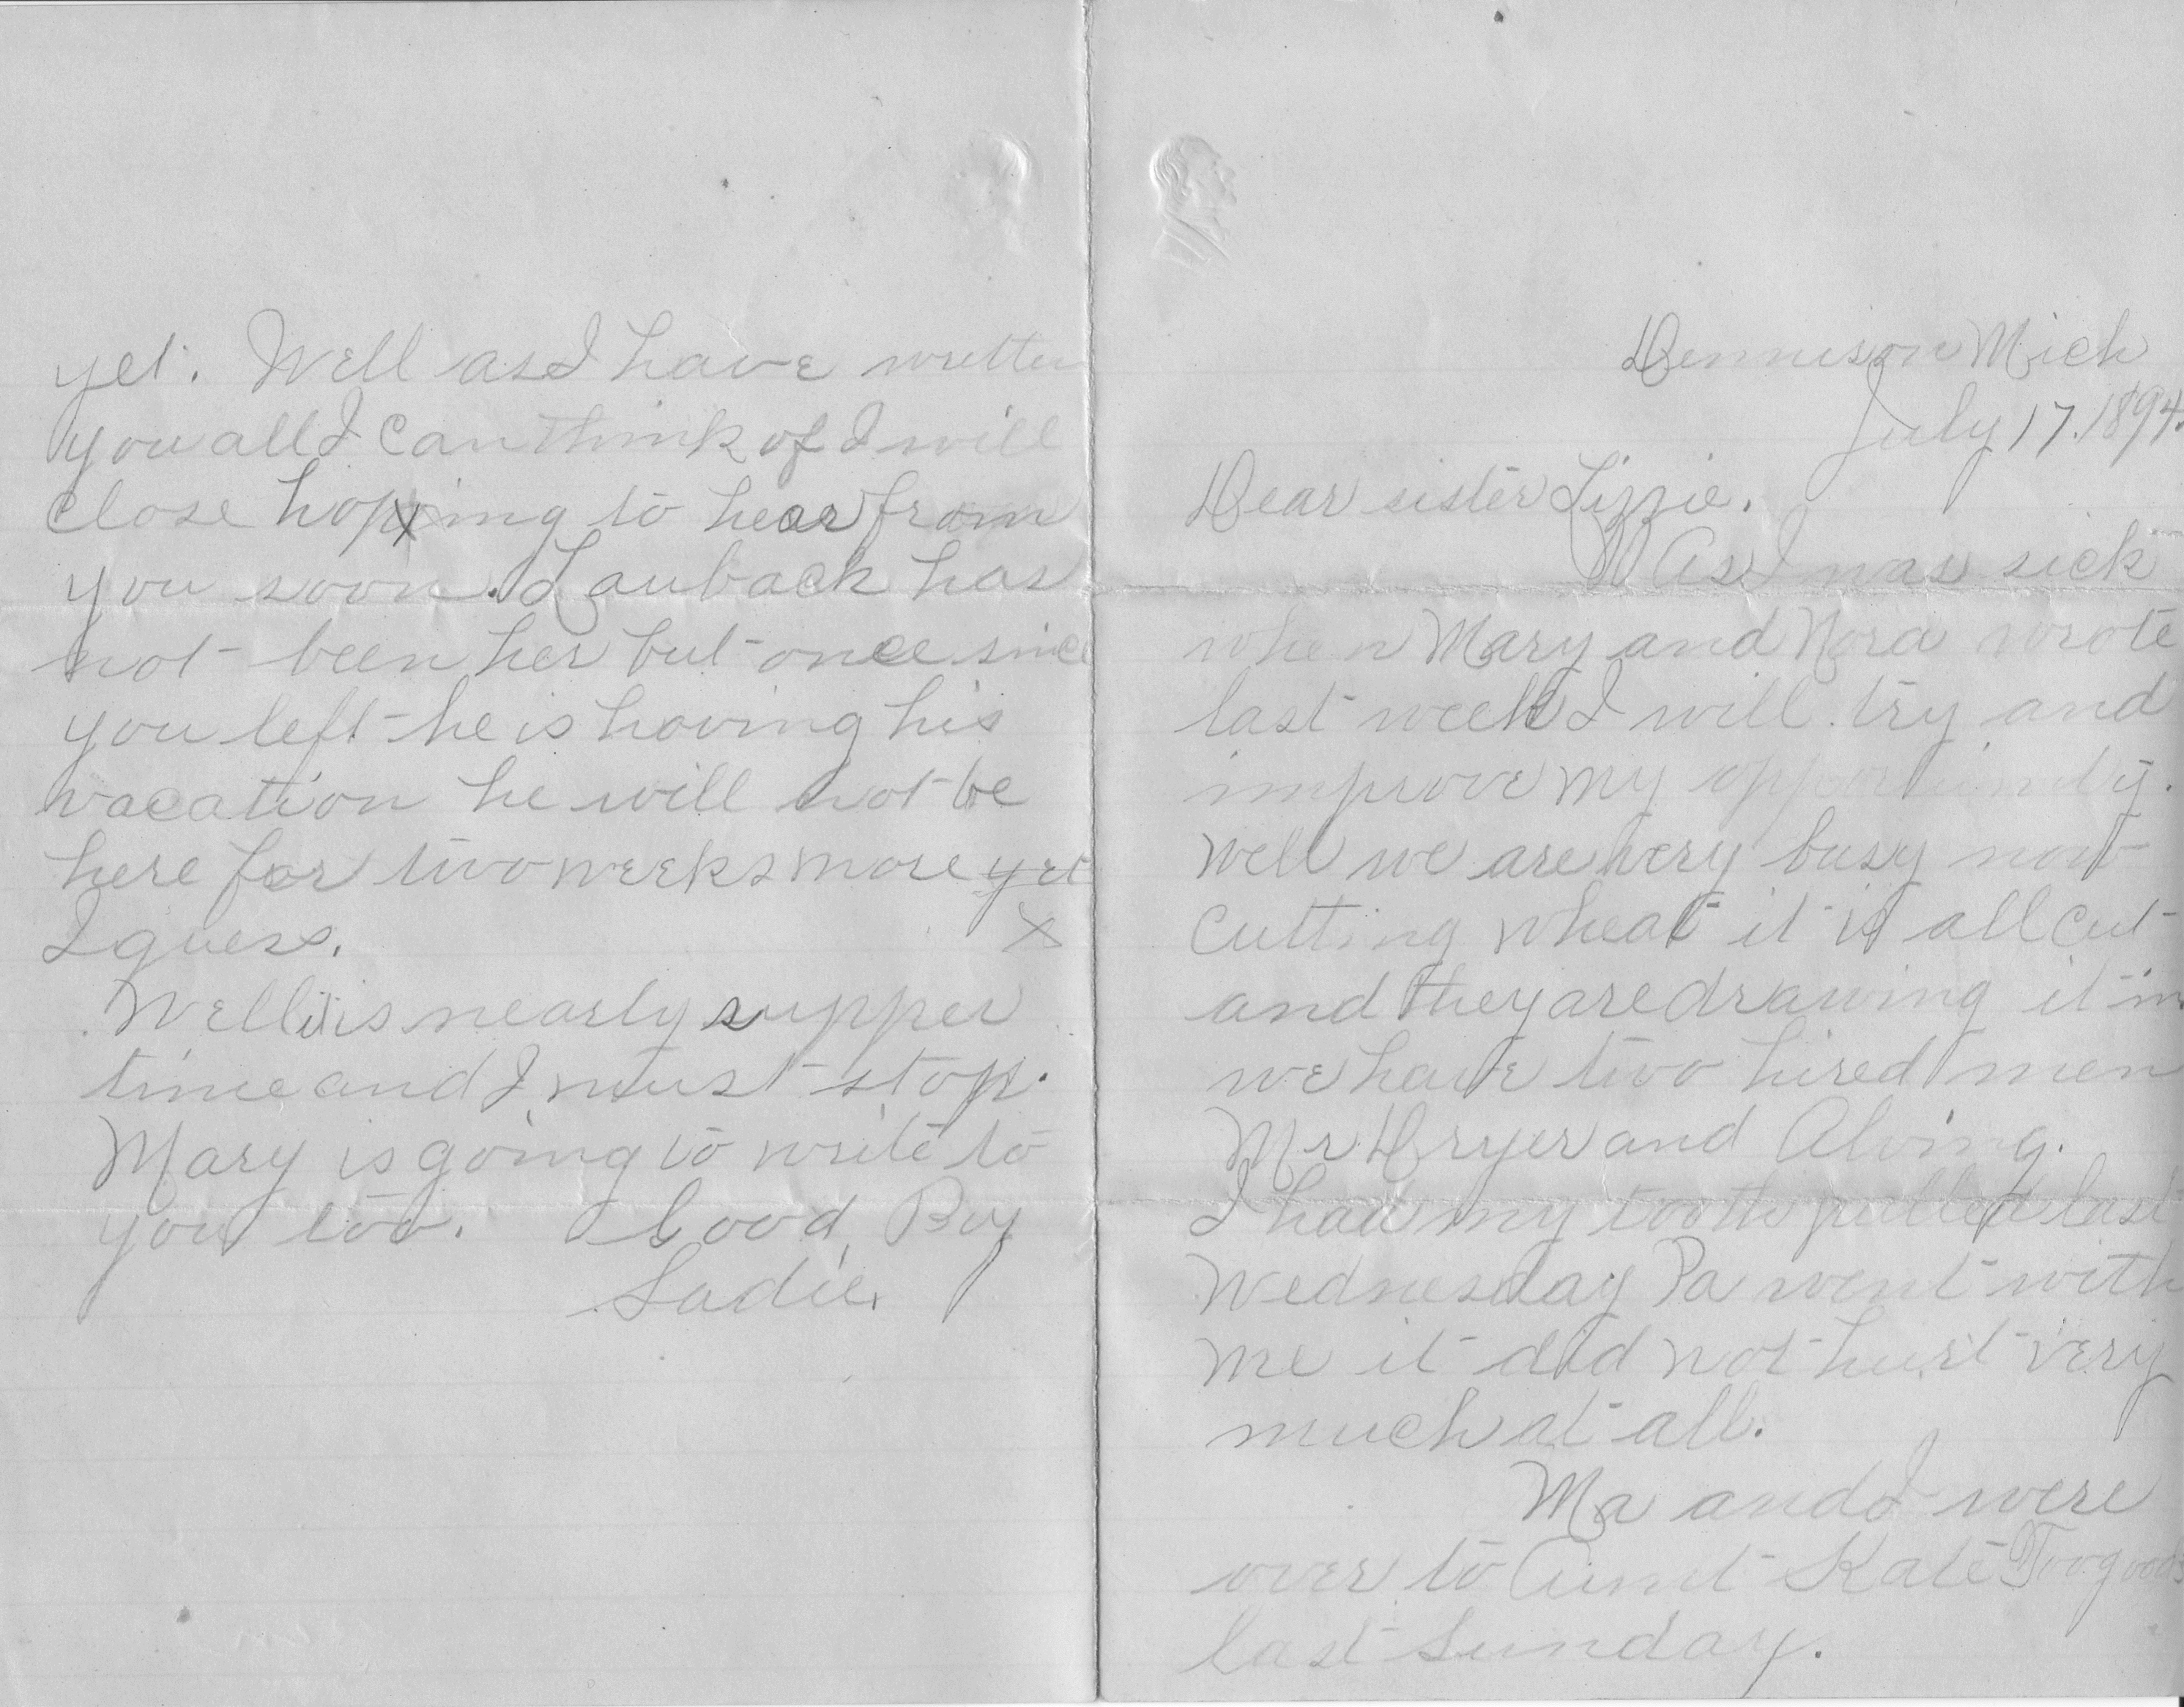 Dennison Mich
July 17. 1894.
Dear sister Lizzie.
As I was sick
when Mary and Nora wrote
last week I will try and
improve my opportunity.
Well we are very busy now
cutting wheat it is all cut
and they are drawing it in
we have two hired men
Mr Dryer and Alving.
I had my tooth pulled last
Wednesday Pa went with
me it did not hurt very
much at all.
Ma and I were
over to Aunt Kate Toogoods
last Sunday.
yet. Well as I have written
you all I can think of I will
close hoping to hear from
you soon. Lauback has
not been her but once since
you left he is having his
vacation he will not be
here for two weeks more yet
I guess. x
Well it is nearly supper
time and I must stop.
Mary is going to write to
you too. Good Boy
Sadie.